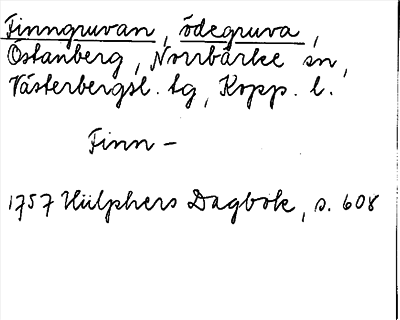 Finngruvan, ödegruva,
Östanberg, Norrbärke sn,
Västerbergsl. tg, Kopp. l.
Finn-
1757 Hülphers Dagbok, s. 608